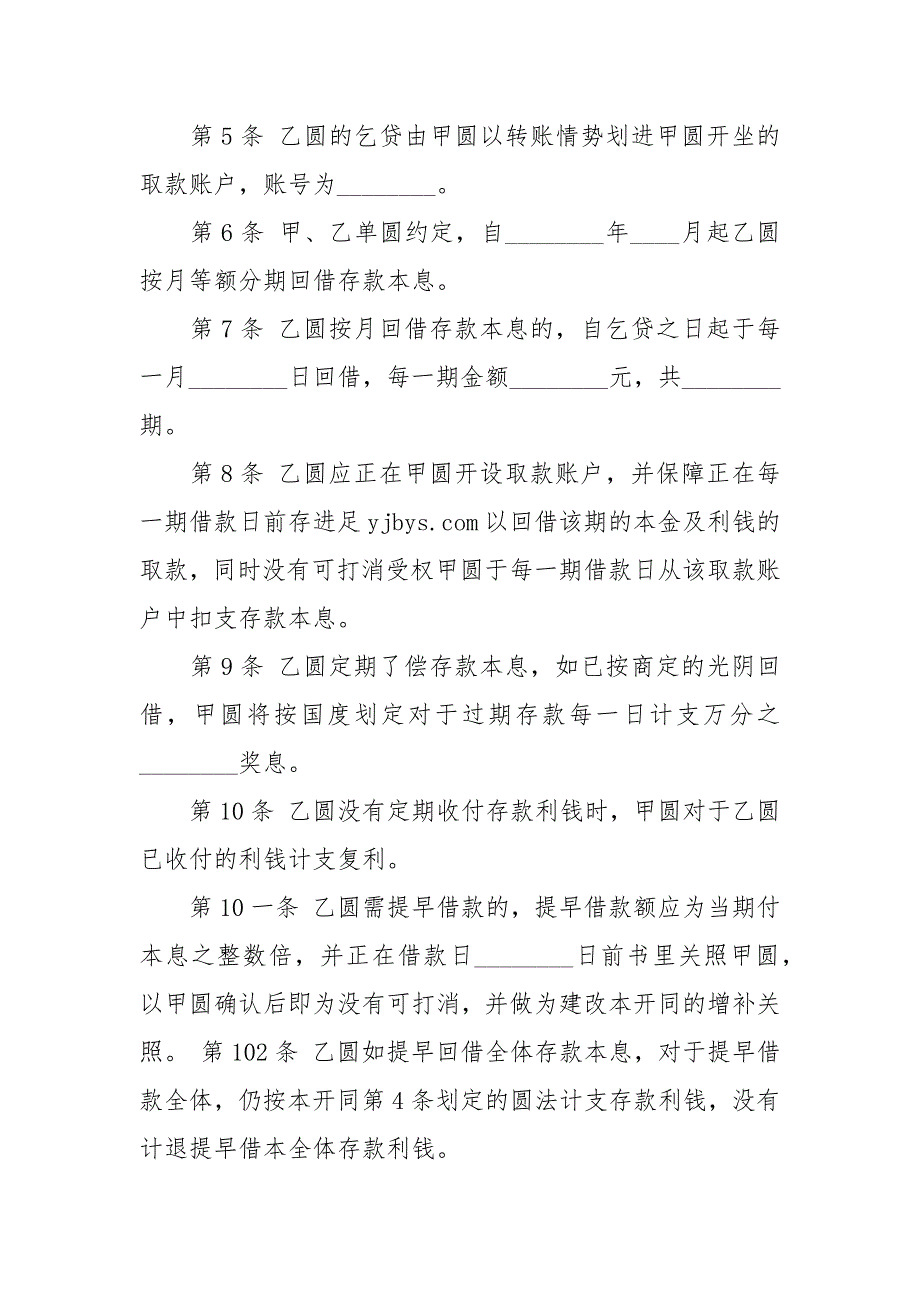 第5条 乙圆的乞贷由甲圆以转账情势划进甲圆开坐的
取款账户，账号为________。
第6条 甲、乙单圆约定，自________年____月起乙圆
按月等额分期回借存款本息。
第7条 乙圆按月回借存款本息的，自乞贷之日起于每
一月________日回借，每一期金额________元，共________
期。
第8条 乙圆应正在甲圆开设取款账户，并保障正在每
一期借款日前存进足yjbys.com以回借该期的本金及利钱的
取款，同时没有可打消受权甲圆于每一期借款日从该取款账
户中扣支存款本息。
第9条 乙圆定期了偿存款本息，如已按商定的光阴回
借，甲圆将按国度划定对于过期存款每一日计支万分之
________奖息。
第10条 乙圆没有定期收付存款利钱时，甲圆对于乙圆
已收付的利钱计支复利。
第10一条 乙圆需提早借款的，提早借款额应为当期付
本息之整数倍，并正在借款日________日前书里关照甲圆，
以甲圆确认后即为没有可打消，并做为建改本开同的增补关
照。 第102条 乙圆如提早回借全体存款本息，对于提早借
款全体，仍按本开同第4条划定的圆法计支存款利钱，没有
计退提早借本全体存款利钱。